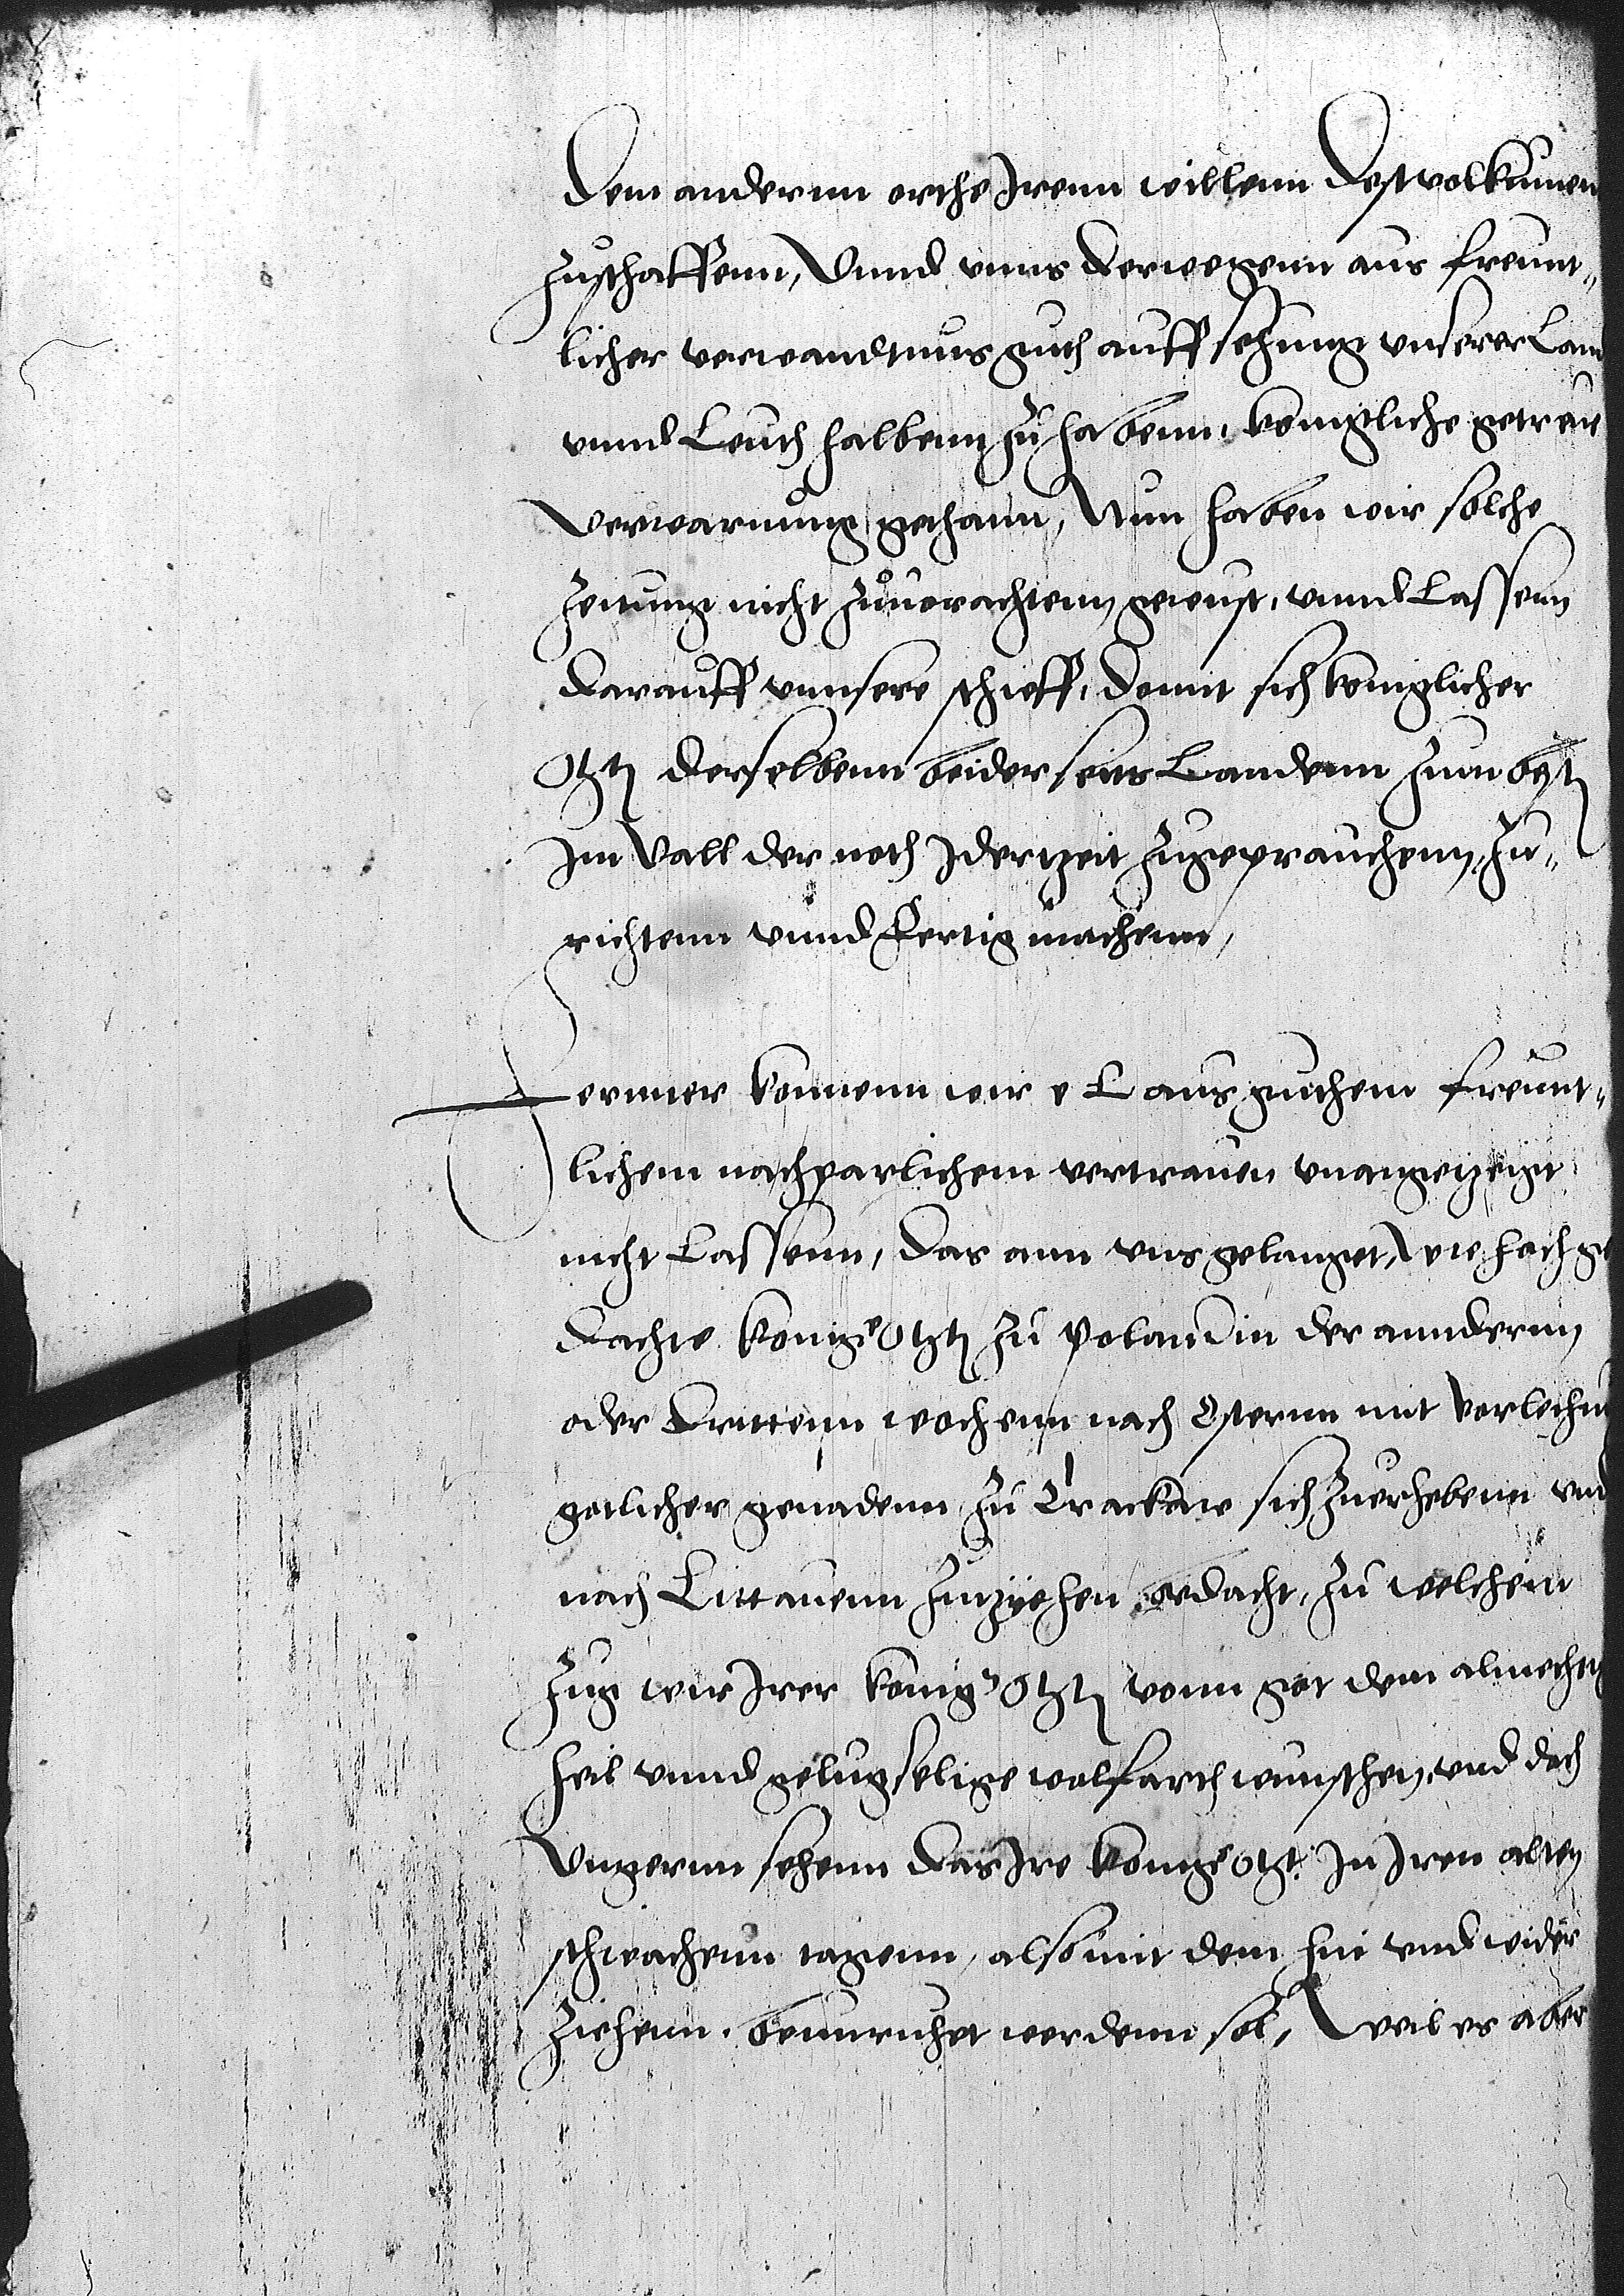 Dem andernn orthe Irenn willenn Dest volkumen
zuschaffenn, Vnnd vnns derwegenn aus freunt„
licher verwandtnus guth auffsehung vnserer Lannd
vnnd Leuth halbenn zu habenn, königliche getreue
Verwarnung gethann, Nun haben wir solche
Zeitung nicht zuuorachtenn gewust, vnnd Lassenn
darauff vnnsere schieff, damit sich königlicher
Mtt derselbenn beiderseits Landenn zum best
Im Vall der noth Iderzeit zugeprauchenn, zu„
richtenn vnnd Fertig machenn,
Fernner konnenn wir e L aus guthem freunt„
lichem nachparlichem vertrauen vnangezeigt
nicht Lassenn, das ann vns gelanget, wie hochge
dachte konige Mtt zu Polann in der anndernn
oder Drittenn wochenn nach Osternn mit vorleihung
gotlicher genadenn zu Crackaw sich zuerhebenn vnd
nach Littauenn zuzyehen bedacht, zu welchem
Zug wir Irer könige Mtt vonn got dem almechtg
heil vnnd gelugselige wolfarth wunschen, vnd doch
Vngernn sehenn das Ire könige Mtt In Iren alten
schwachenn tagenn, also mit dem hin vnd wider
Ziehenn. beunruhet werdenn sol, Weil es aber